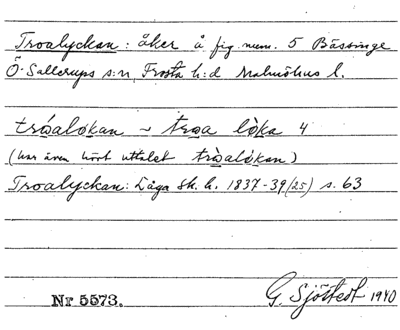 Troalyckan: åker å fig. num. 5 Bässinge
Ö. Sallerups s:n, Frosta h:d Malmöhus l.
tròalókan ~ troa lòka 4
(har även hört uttalet tròalókan)
Troalyckan: Laga sk. h. 1837-39 (25) s. 63
Nr 5573.
G. Sjöstedt 1940